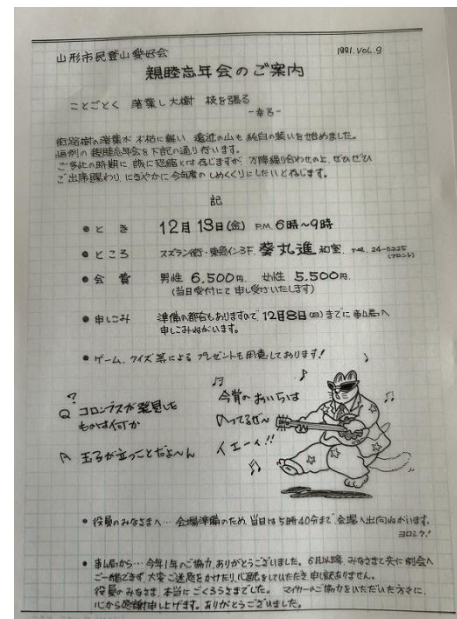 1991. VOL. 9
山形市民登山愛好会
親睦忘年会のご案内
ことごとく 落葉し大樹 枝を張る
街路樹の落葉が 木枯に舞い 遠近の山も 純白の装いを始めました。
恒例の親睦忘年会を下記の通り行います。
ご多忙の時期に 誠に恐縮とは存じますが、万障繰り合わせの上、ぜひぜひ
ご出席賜わり、にぎやかに今年度のしめくくりにしたいと存じます。
記
● と き 12月13日(金) P.M. 6時〜9時
● ところ スズラン街・東急イン3F. 葵丸進 和室. TEL. 24-0225
(フロント)
● 会 費 男性 6,500円. 女性 5,500円.
(当日受付にて申し受けいたします)
● 申しこみ 準備の都合もありますので、12月8日(日)までに事ム局へ
申しこみねがいます。
● ゲーム、クイズ等による プレゼントも用意しております!
?
Q コロンブスが発見した
ものは何か
A 玉子が立つことだよ〜ん
今宵のおいらは
のってるぜ〜
イエーイ!!
● 役員のみなさまへ… 会場準備のため、当日は5時40分まで、会場へ出向ねがいます。
ヨロシク!
● 事ム局から… 今年1年のご協力、ありがとうございました。6月以降、みなさまと共に例会へ
ご一緒できず、大変ご迷惑をかけたり、心配をしていただき申し訳ありません。
役員のみなさま、本当にごくろうさまでした。 マイカーのご協力をいただいた方々に、
心から感謝申し上げます。ありがとうございました。